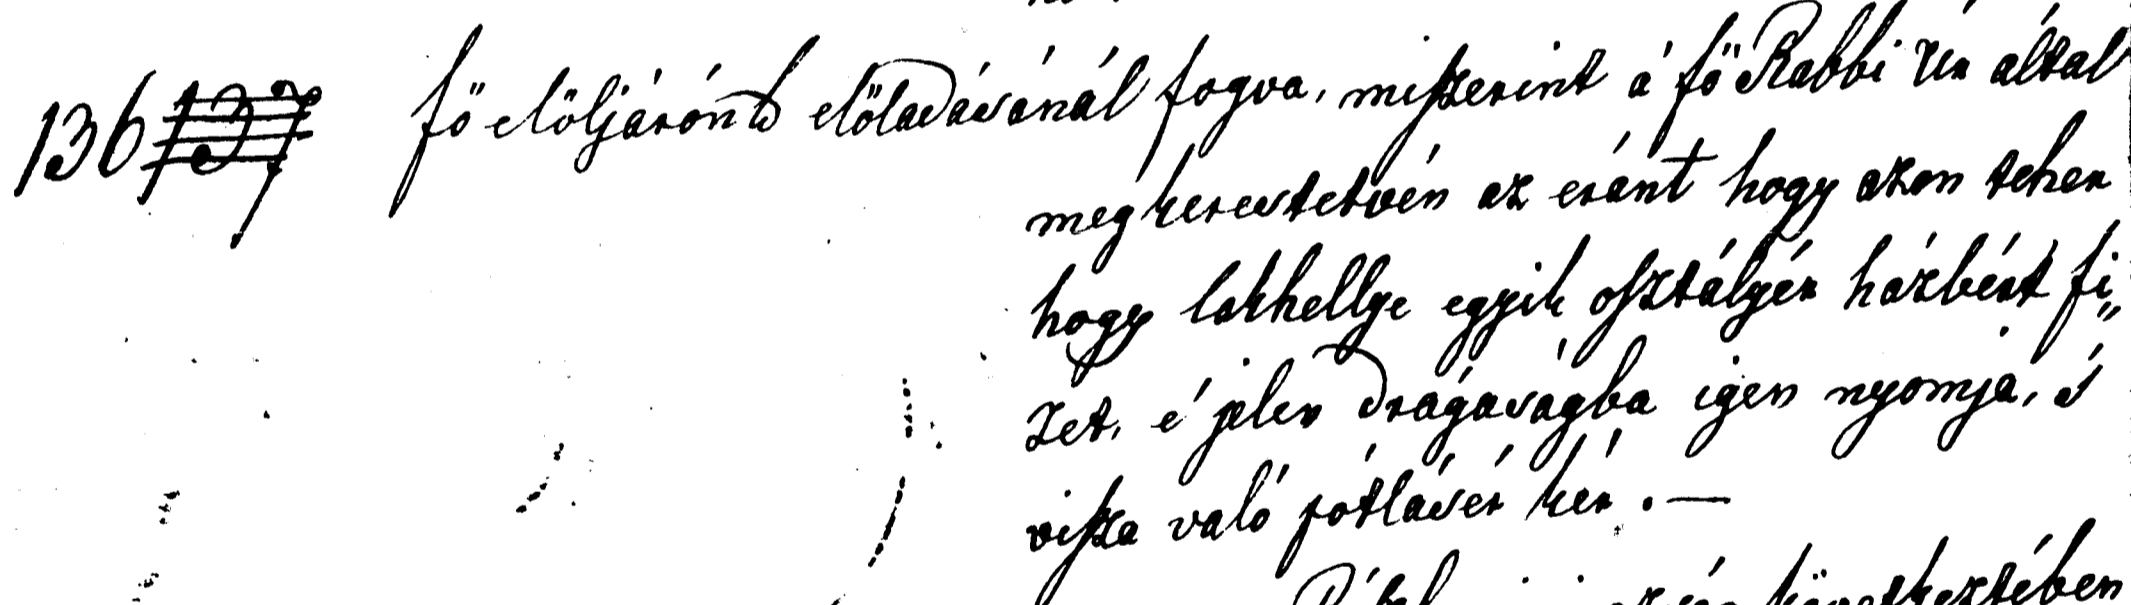 136 137 fö elöljárónk elöladásánál fogva, miszerint á fö Rabbi úr által
megkerestetvén az eránt hogy azon teher
hogy lakhellye egyik osztályér házbért fi„
zet, é jelen drágaságba igen nyomja, 's
vissza való pótlásér kér. —
következtében